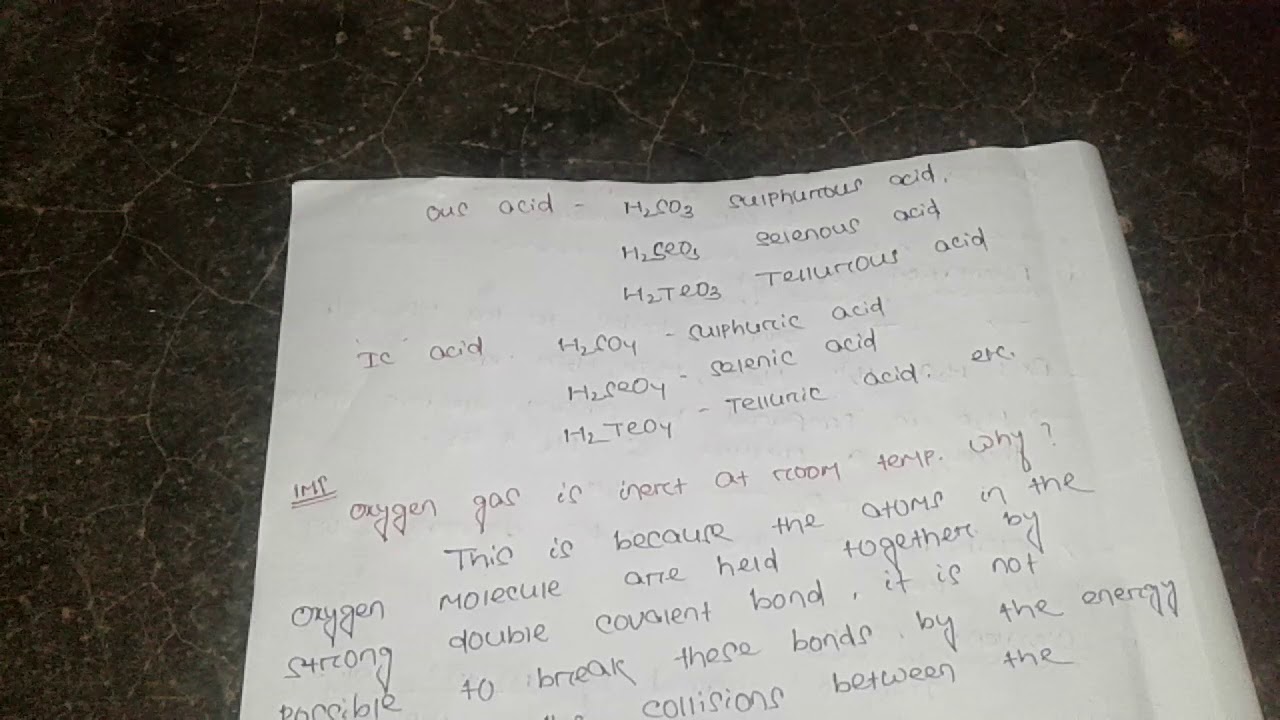 ous acid - H₂SO₃ sulphurous acid.
H₂SeO₃ selenous acid
H₂TeO₃ Tellurous acid
Ic acid. H₂SO₄ - sulphuric acid
H₂SeO₄ - selenic acid
H₂TeO₄ - Telluric acid. etc.
IMP oxygen gas is inert at room temp. why?
This is because the atoms in the
oxygen molecule are held together by
strong double covalent bond, it is not
possible to break these bonds by the energy
collisions between the